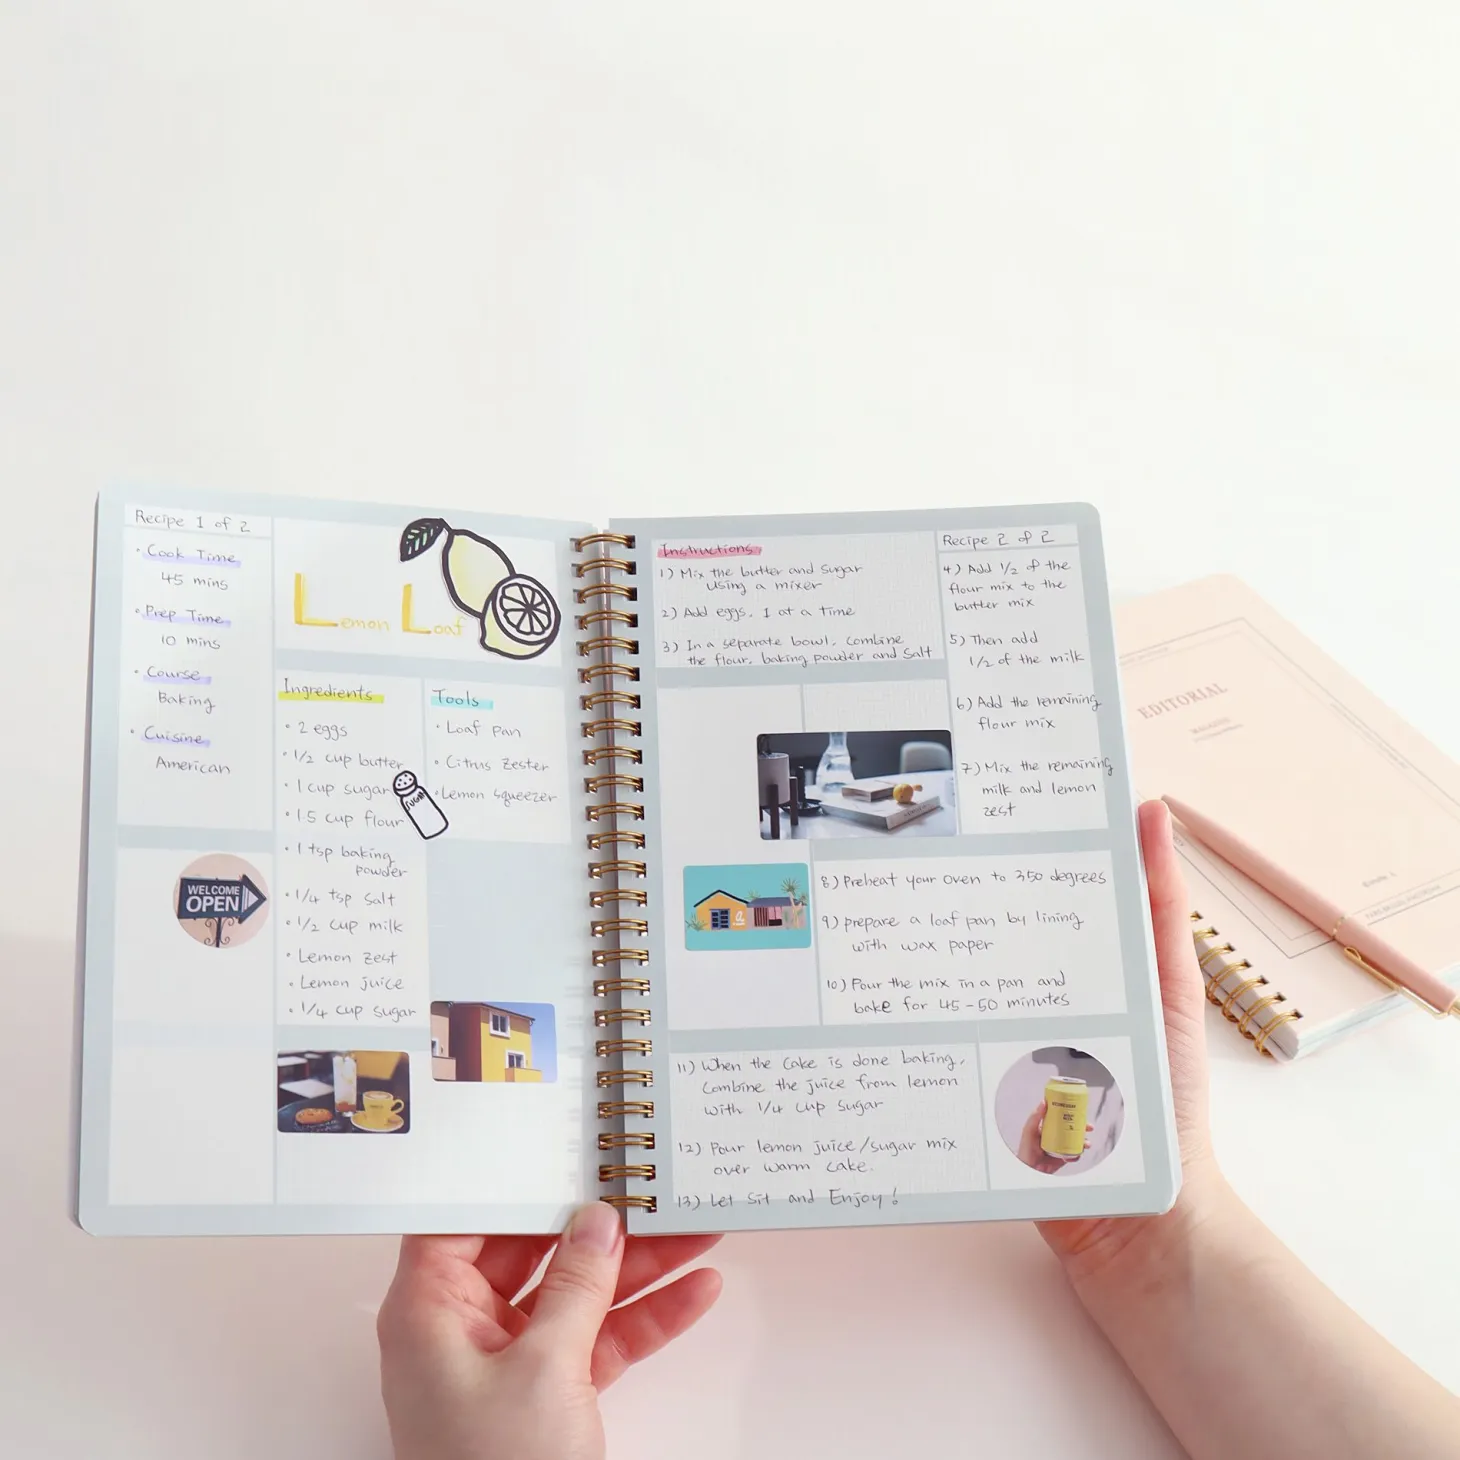 Recipe 1 of 2
• Cook Time
45 mins
• Prep Time
10 mins
• Course
Baking
• Cuisine
American
Lemon Loaf
Ingredients
• 2 eggs
• 1/2 cup butter
• 1 cup sugar
• 1.5 cup flour
• 1 tsp baking
powder
• 1/4 tsp salt
• 1/2 cup milk
• Lemon zest
• Lemon juice
• 1/4 cup sugar
SUGAR
Tools
• Loaf pan
• Citrus zester
• Lemon squeezer
WELCOME
OPEN
Instructions
1) Mix the butter and sugar
using a mixer
2) Add eggs, 1 at a time
3) In a separate bowl, combine
the flour, baking powder and salt
Recipe 2 of 2
4) Add 1/2 of the
flour mix to the
butter mix
5) Then add
1/2 of the milk
6) Add the remaining
flour mix
7) Mix the remaining
milk and lemon
zest
8) Preheat your oven to 350 degrees
9) prepare a loaf pan by lining
with wax paper
10) Pour the mix in a pan and
bake for 45-50 minutes
11) When the cake is done baking,
combine the juice from lemon
with 1/4 cup sugar
12) Pour lemon juice/sugar mix
over warm cake.
13) Let Sit and Enjoy!
EDITORIAL